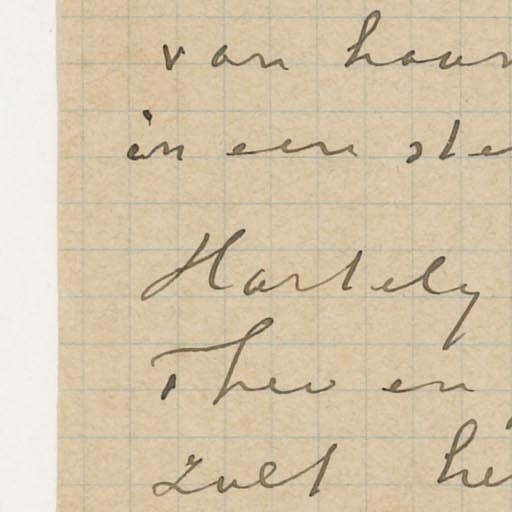 van haar
in een ste
Hartely
Theo en
zult he